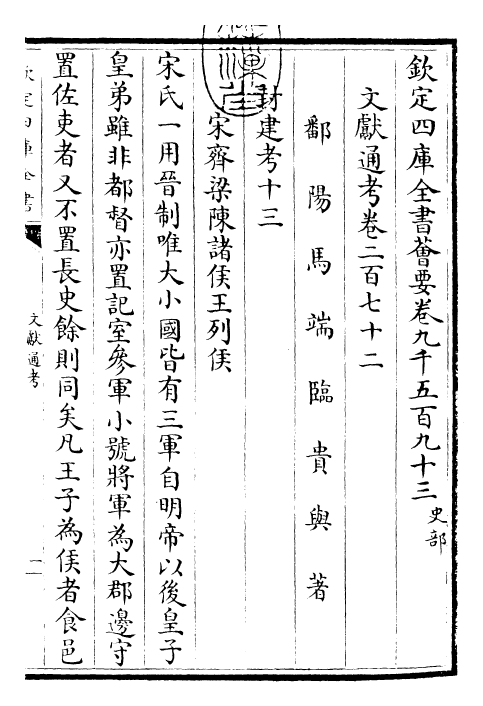 欽定四庫全書薈要卷九千五百九十三史部
文獻通考卷二百七十二
鄱陽馬端臨貴與著
封建考十三
宋齊梁陳諸侯王列侯
宋氏一用晉制唯大小國皆有三軍自明帝以後皇子
皇弟雖非都督亦置記室參軍小號將軍為大郡邊守
置佐吏者又不置長史餘則同矣凡王子為侯者食邑
欽定四庫全書
文獻通考
一